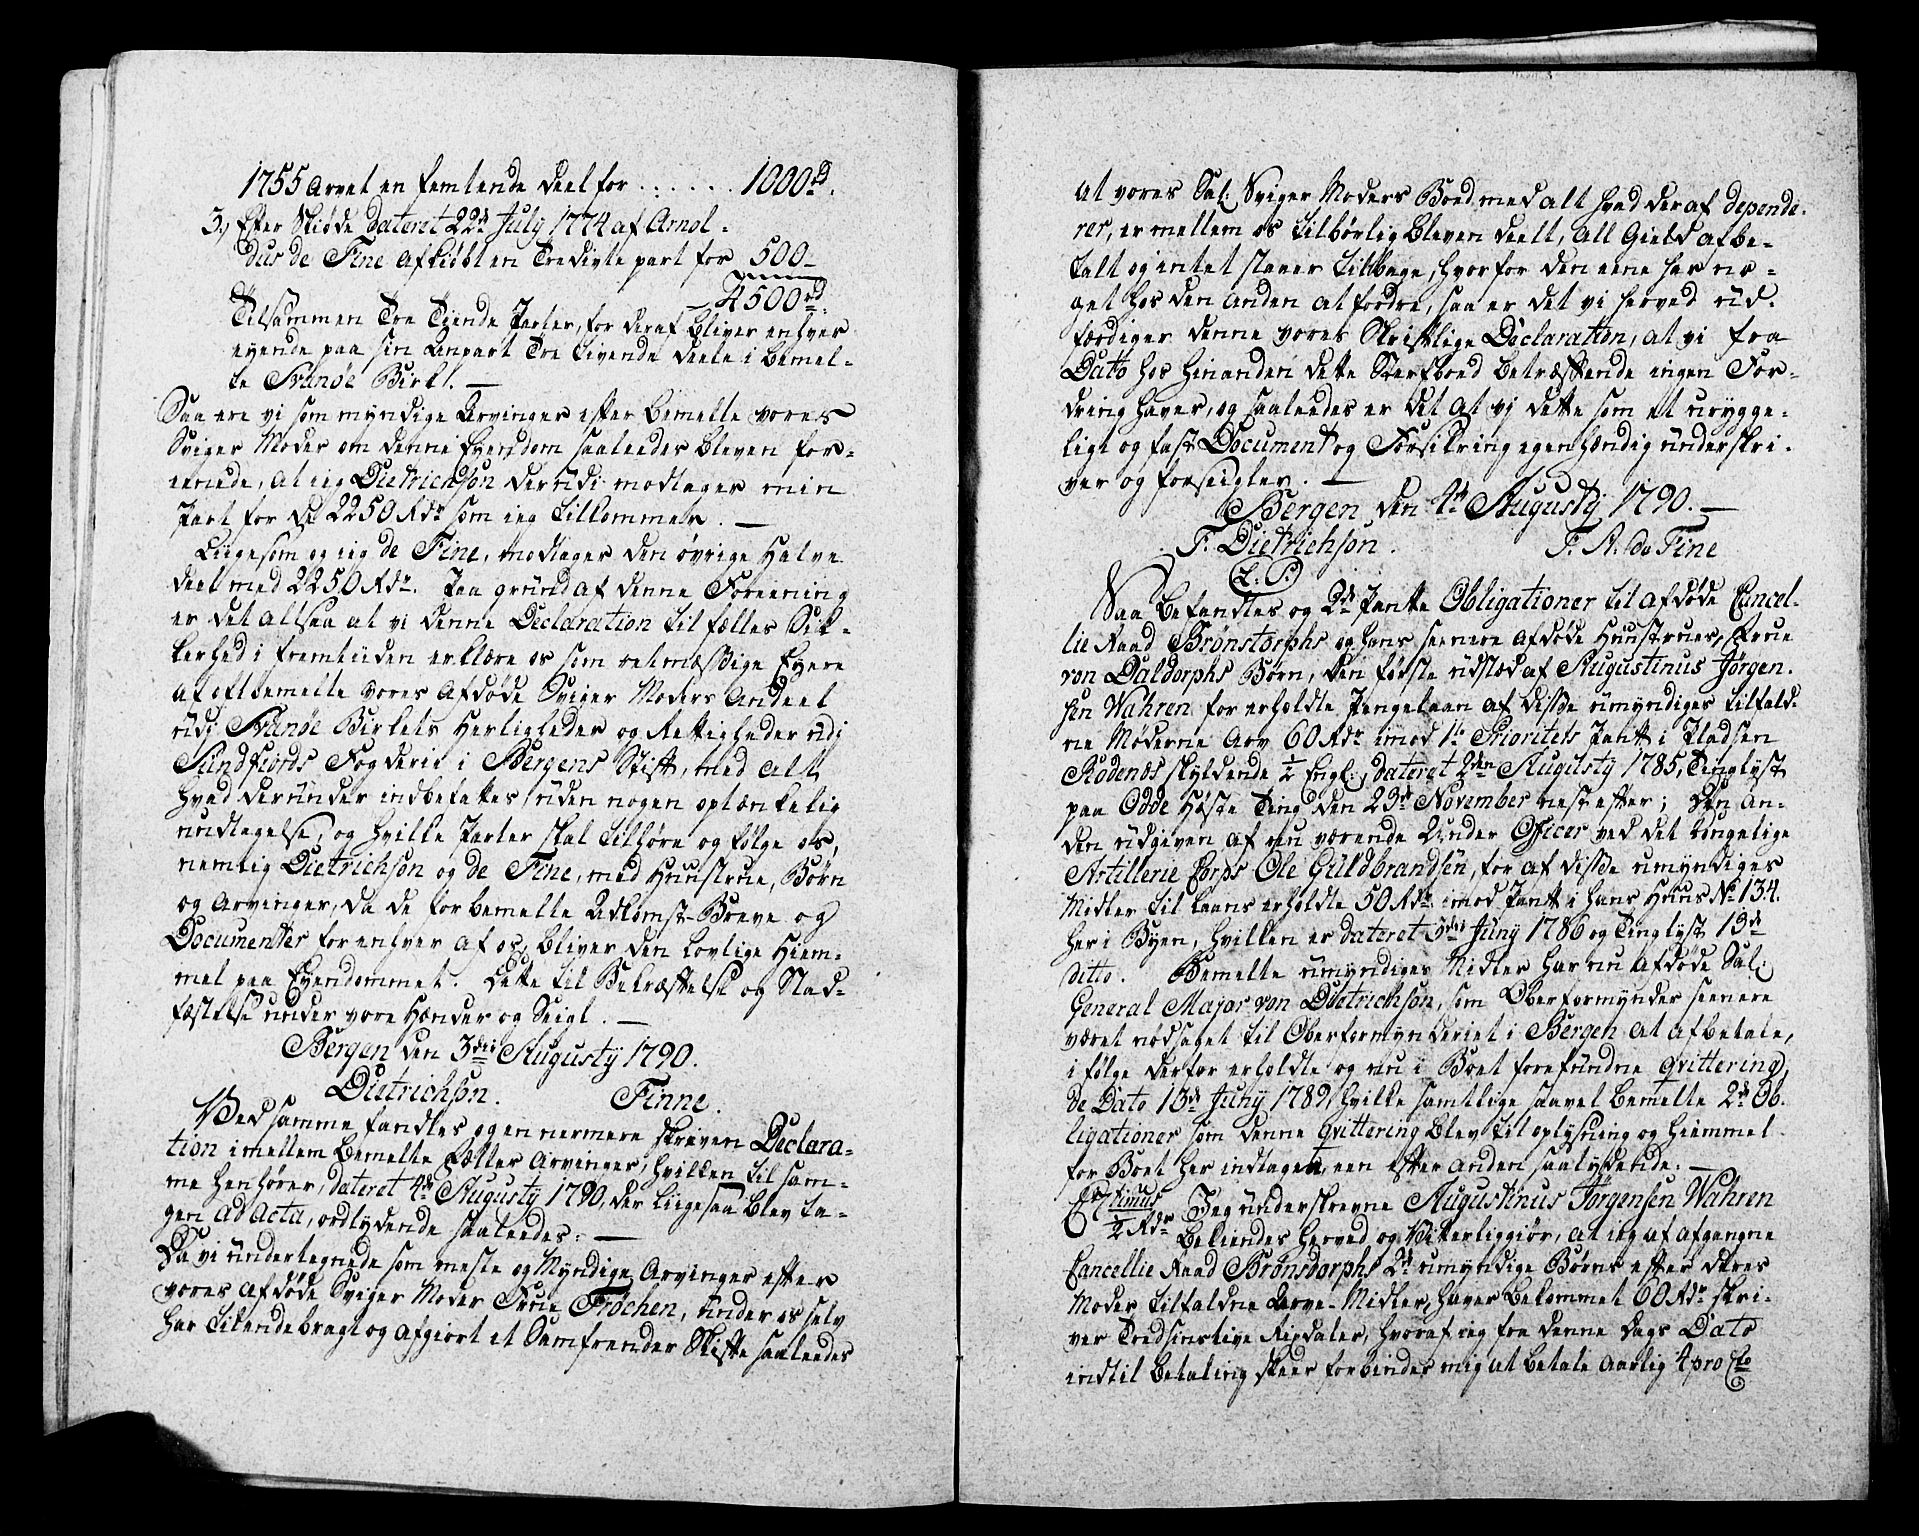 1755 Arvet en femtende deel for . . . . . . 1000 rd.
3, Efter Skiøde dateret 22de July 1774 af Arnol-
dus de Fine afkiøbt en Tredivte part for 500 -
4500 rd.
Tilsammen Tre Tiende Parter, for deraf bliver enhver
eyende paa sin Anpart Tre Tivende deele i bemel-
te Svanøe Birk. -
Saa ere vi som myndige Arvinger efter bemelte vores
Sviger Moder om denne Eyendom saaleedes bleven for-
eenede, at jeg Dietrichson derudi modtager min
Part for de 2250 Rdr som jeg tilkommer. -
Liigesom og jeg de Fine, modtager den øvrige halve
deel med 2250 Rdr. Paa grund af denne Foreening
er det altsaa at vi denne Declaration til fælles Sik-
kerhed i fremtiiden erklære os som retmæssige Eyere
af oftbemelte vores afdøde Sviger Moders Andeel
udj Svanøe Birkets Herligheder og Rettigheder udj
Sundfiords Fogderie i Bergens Stift, med alt
hvad derunder indbefattes, uden nogen optænkelig
undtagelse, og hvilke Parter skal tilhøre og følge os,
nemlig Dietrichson og de Fine, med Huustrue, Børn
og Arvinger, da de forbemelte Adkomst-Breve og
Documenter for enhver af os, bliver den lovlige Hiem-
mel paa Eyendommet. Dette til Bekræftelse og Stad-
fæstelse under vore Hænder og Seigl. -
Bergen den 3die Augusty 1790.
Dietrichson. Finne.
Ved samme fandtes og en nermere skreven Declara-
tion imellem bemelte Fælles Arvinger, hvilken til sam-
me henhører, dateret 4de Augusty 1790, der liigesaa blev ta-
gen ad acta, ordlydende saaleedes: -
Da vi undertegnede som meste og Myndige Arvinger efter
vores afdøde Sviger Moder Frue Frøchen, under os selv
har tilendebragt og afgiort et Samfrender Skifte saaleedes
at vores Sal: Sviger Moders Boed med alt hvad deraf depende-
rer, er mellem os tilbørlig bleven deelt, all Gield afbe-
talt og intet staaer tilbage, hvorfor den eene har no-
get hos den anden at fordre, saa er det vi herved ud-
færdiger denne vores Skriftlige Declaration, at vi fra
Dato hos hinanden dette Sterfboed betræffende ingen For-
dring haver, og saaleedes er det at vj dette som et urygge-
ligt og fast Document og Forsikring egenhændig underskri-
ver og forseigler. -
Bergen den 4de Augusty 1790. -
F. Dietrichson. F. A. de Fine
(L. S.)
Saa befandtes og 2de Pante Obligationer til afdøde Cancel-
lie Raad Brønstorphs og hans seenere afdøde Huustrues, Frue
von Daldorphs Børn, den første udsted af Augustinus Jørgen-
sen Wahren for erholdte Pengelaan af disse umyndiges tilfald-
ne Møderne Arv 60 Rdr imod 1te Prioritets Pant i Pladsen
Rødenos skyldende 1/2 Engl:, dateret 2den Augusty 1785, Tinglyst
paa Odde Høste Ting den 23de November nest efter; den an-
den udgiven af nu værende Under Officer ved det kongelige
Artillerie Corps Ole Guldbrandsen, for af disse umyndiges
Midler til laans erholdte 50 Rdr. imod Pant i hans Huus No 134.
her i Byen, hvilken er dateret 3die Juny 1786 og Tinglyst 13de
ditto. Bemelte umyndiges Midler har nu afdøde Sal:
General Major von Dietrichson, som Oberformynder seenere
været nødsaget til Oberformynderiet i Bergen at afbetale,
i følge derfor erholdte og nu i Boet forefundne Qvittering,
de Dato 13de Juny 1789, hvilke samtlige saavel bemelte 2de Ob-
ligationer som denne Qvittering blev til oplysning og Hiemmel
for Boet her indtagen, een efter anden saalydende. -
1/2 Rdr Jeg underskrevne Augustinus Jørgensen Wahren
bekiendes herved og Vitterliggiør, at jeg af afgangne
Cancellie Raad Brønsdorphs 2de umyndige Børns efter deres
Moder tilfaldne Arve-Midler, haver bekommet 60 Rdr skri-
ver Tredsinstive Rixdaler, hvoraf jeg fra denne Dags Dato
indtil betaling skeer forbinder mig at betale aarlig 4 pro Cto